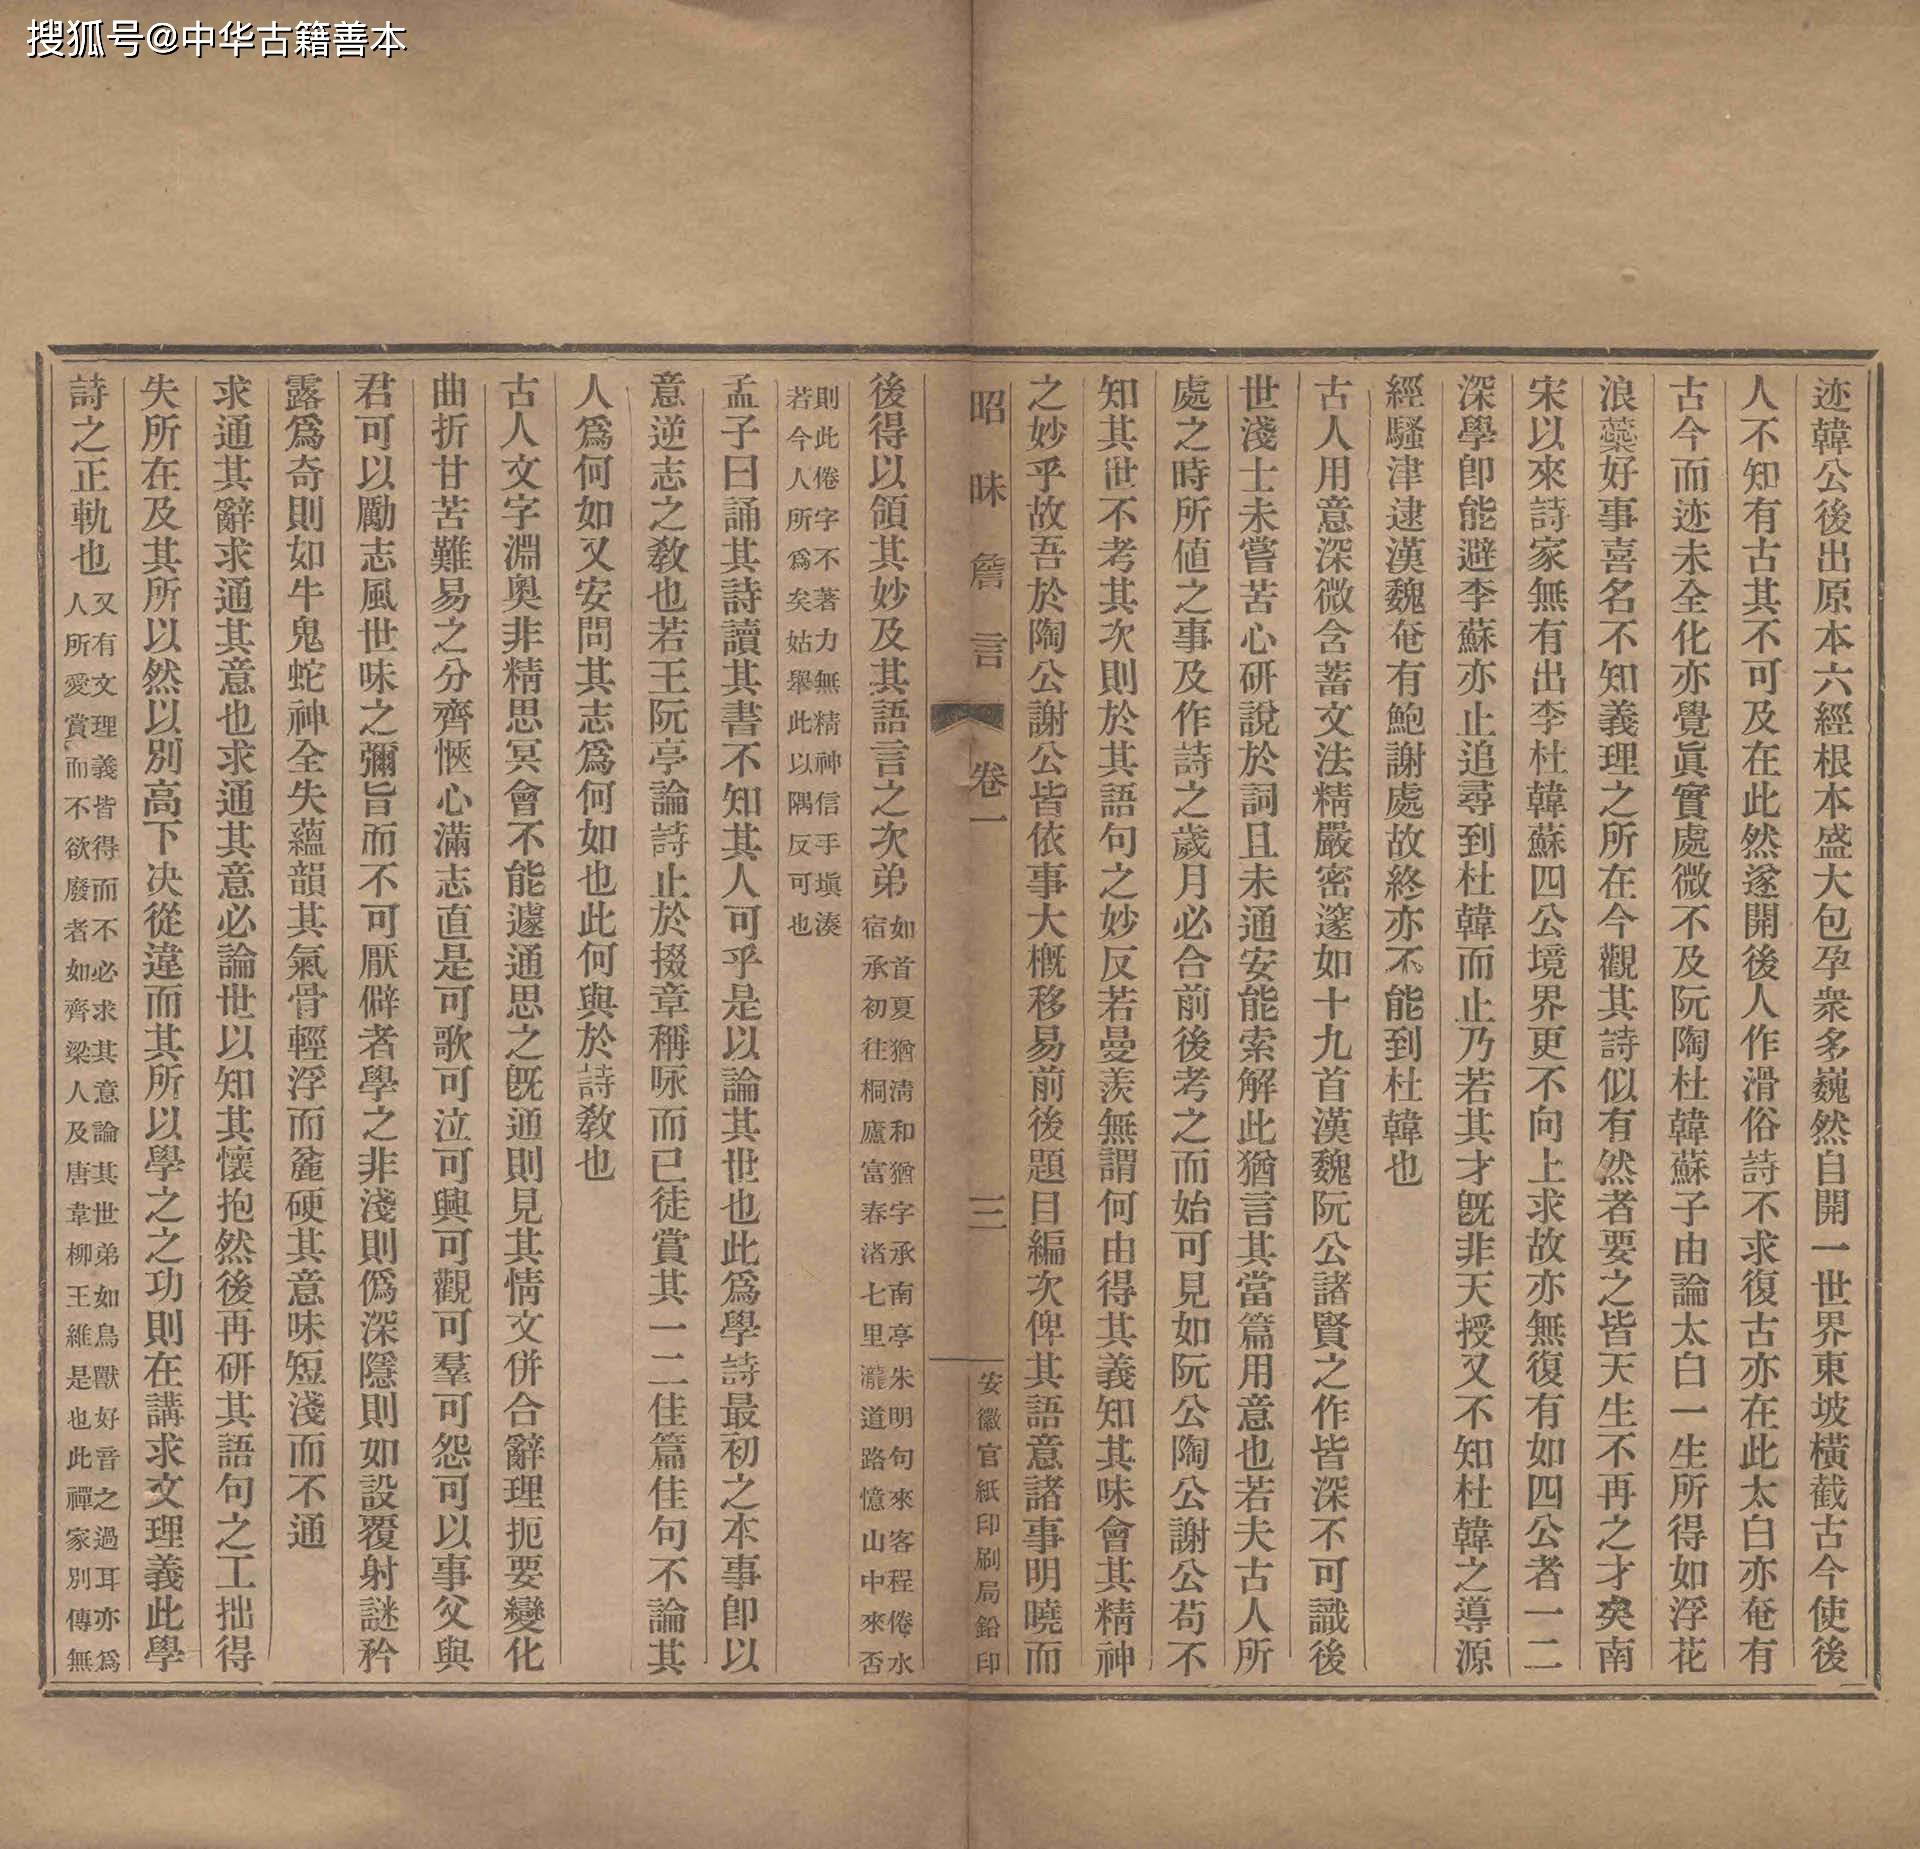 搜狐号@中华古籍善本
迹韓公後出原本六經根本盛大包孕衆多巍然自開一世界東坡橫截古今使後
人不知有古其不可及在此然遂開後人作滑俗詩不求復古亦在此太白亦奄有
古今而迹未全化亦覺眞實處微不及阮陶杜韓蘇子由論太白一生所得如浮花
浪蘂好事喜名不知義理之所在今觀其詩似有然者要之皆天生不再之才矣南
宋以來詩家無有出李杜韓蘇四公境界更不向上求故亦無復有如四公者一二
深學卽能避李蘇亦止追尋到杜韓而止乃若其才旣非天授又不知杜韓之導源
經騷津逮漢魏奄有鮑謝處故終亦不能到杜韓也
古人用意深微含蓄文法精嚴密邃如十九首漢魏阮公諸賢之作皆深不可識後
世淺士未嘗苦心研說於詞且未通安能索解此猶言其當篇用意也若夫古人所
處之時所値之事及作詩之歲月必合前後考之而始可見如阮公陶公謝公苟不
知其世不考其次則於其語句之妙反若曼羨無謂何由得其義知其味會其精神
之妙乎故吾於陶公謝公皆依事大槪移易前後題目編次俾其語意諸事明曉而
昭昧詹言 卷一 三 安徽官紙印刷局鉛印
後得以領其妙及其語言之次弟如首夏猶淸和猶字承南亭朱明句來客程倦水
宿承初往桐廬富春渚七里瀧道路憶山中來否
則此倦字不著力無精神信手塡湊
若今人所爲矣姑舉此以隅反可也
孟子曰誦其詩讀其書不知其人可乎是以論其世也此爲學詩最初之本事卽以
意逆志之敎也若王阮亭論詩止於掇章稱咏而已徒賞其一二佳篇佳句不論其
人爲何如又安問其志爲何如也此何與於詩敎也
古人文字淵奧非精思冥會不能遽通思之旣通則見其情文併合辭理扼要變化
曲折甘苦難易之分齊愜心滿志直是可歌可泣可興可觀可羣可怨可以事父與
君可以勵志風世味之彌旨而不可厭僻者學之非淺則僞深隱則如設覆射謎矜
露爲奇則如牛鬼蛇神全失蘊韻其氣骨輕浮而麄硬其意味短淺而不通
求通其辭求通其意也求通其意必論世以知其懷抱然後再硏其語句之工拙得
失所在及其所以然以別高下決從違而其所以學之之功則在講求文理義此學
詩之正軌也又有文理義皆得而不必求其意論其世弟如鳥獸好音之過耳亦爲
人所愛賞而不欲廢者如齊梁人及唐韋柳王維是也此禪家別傳無